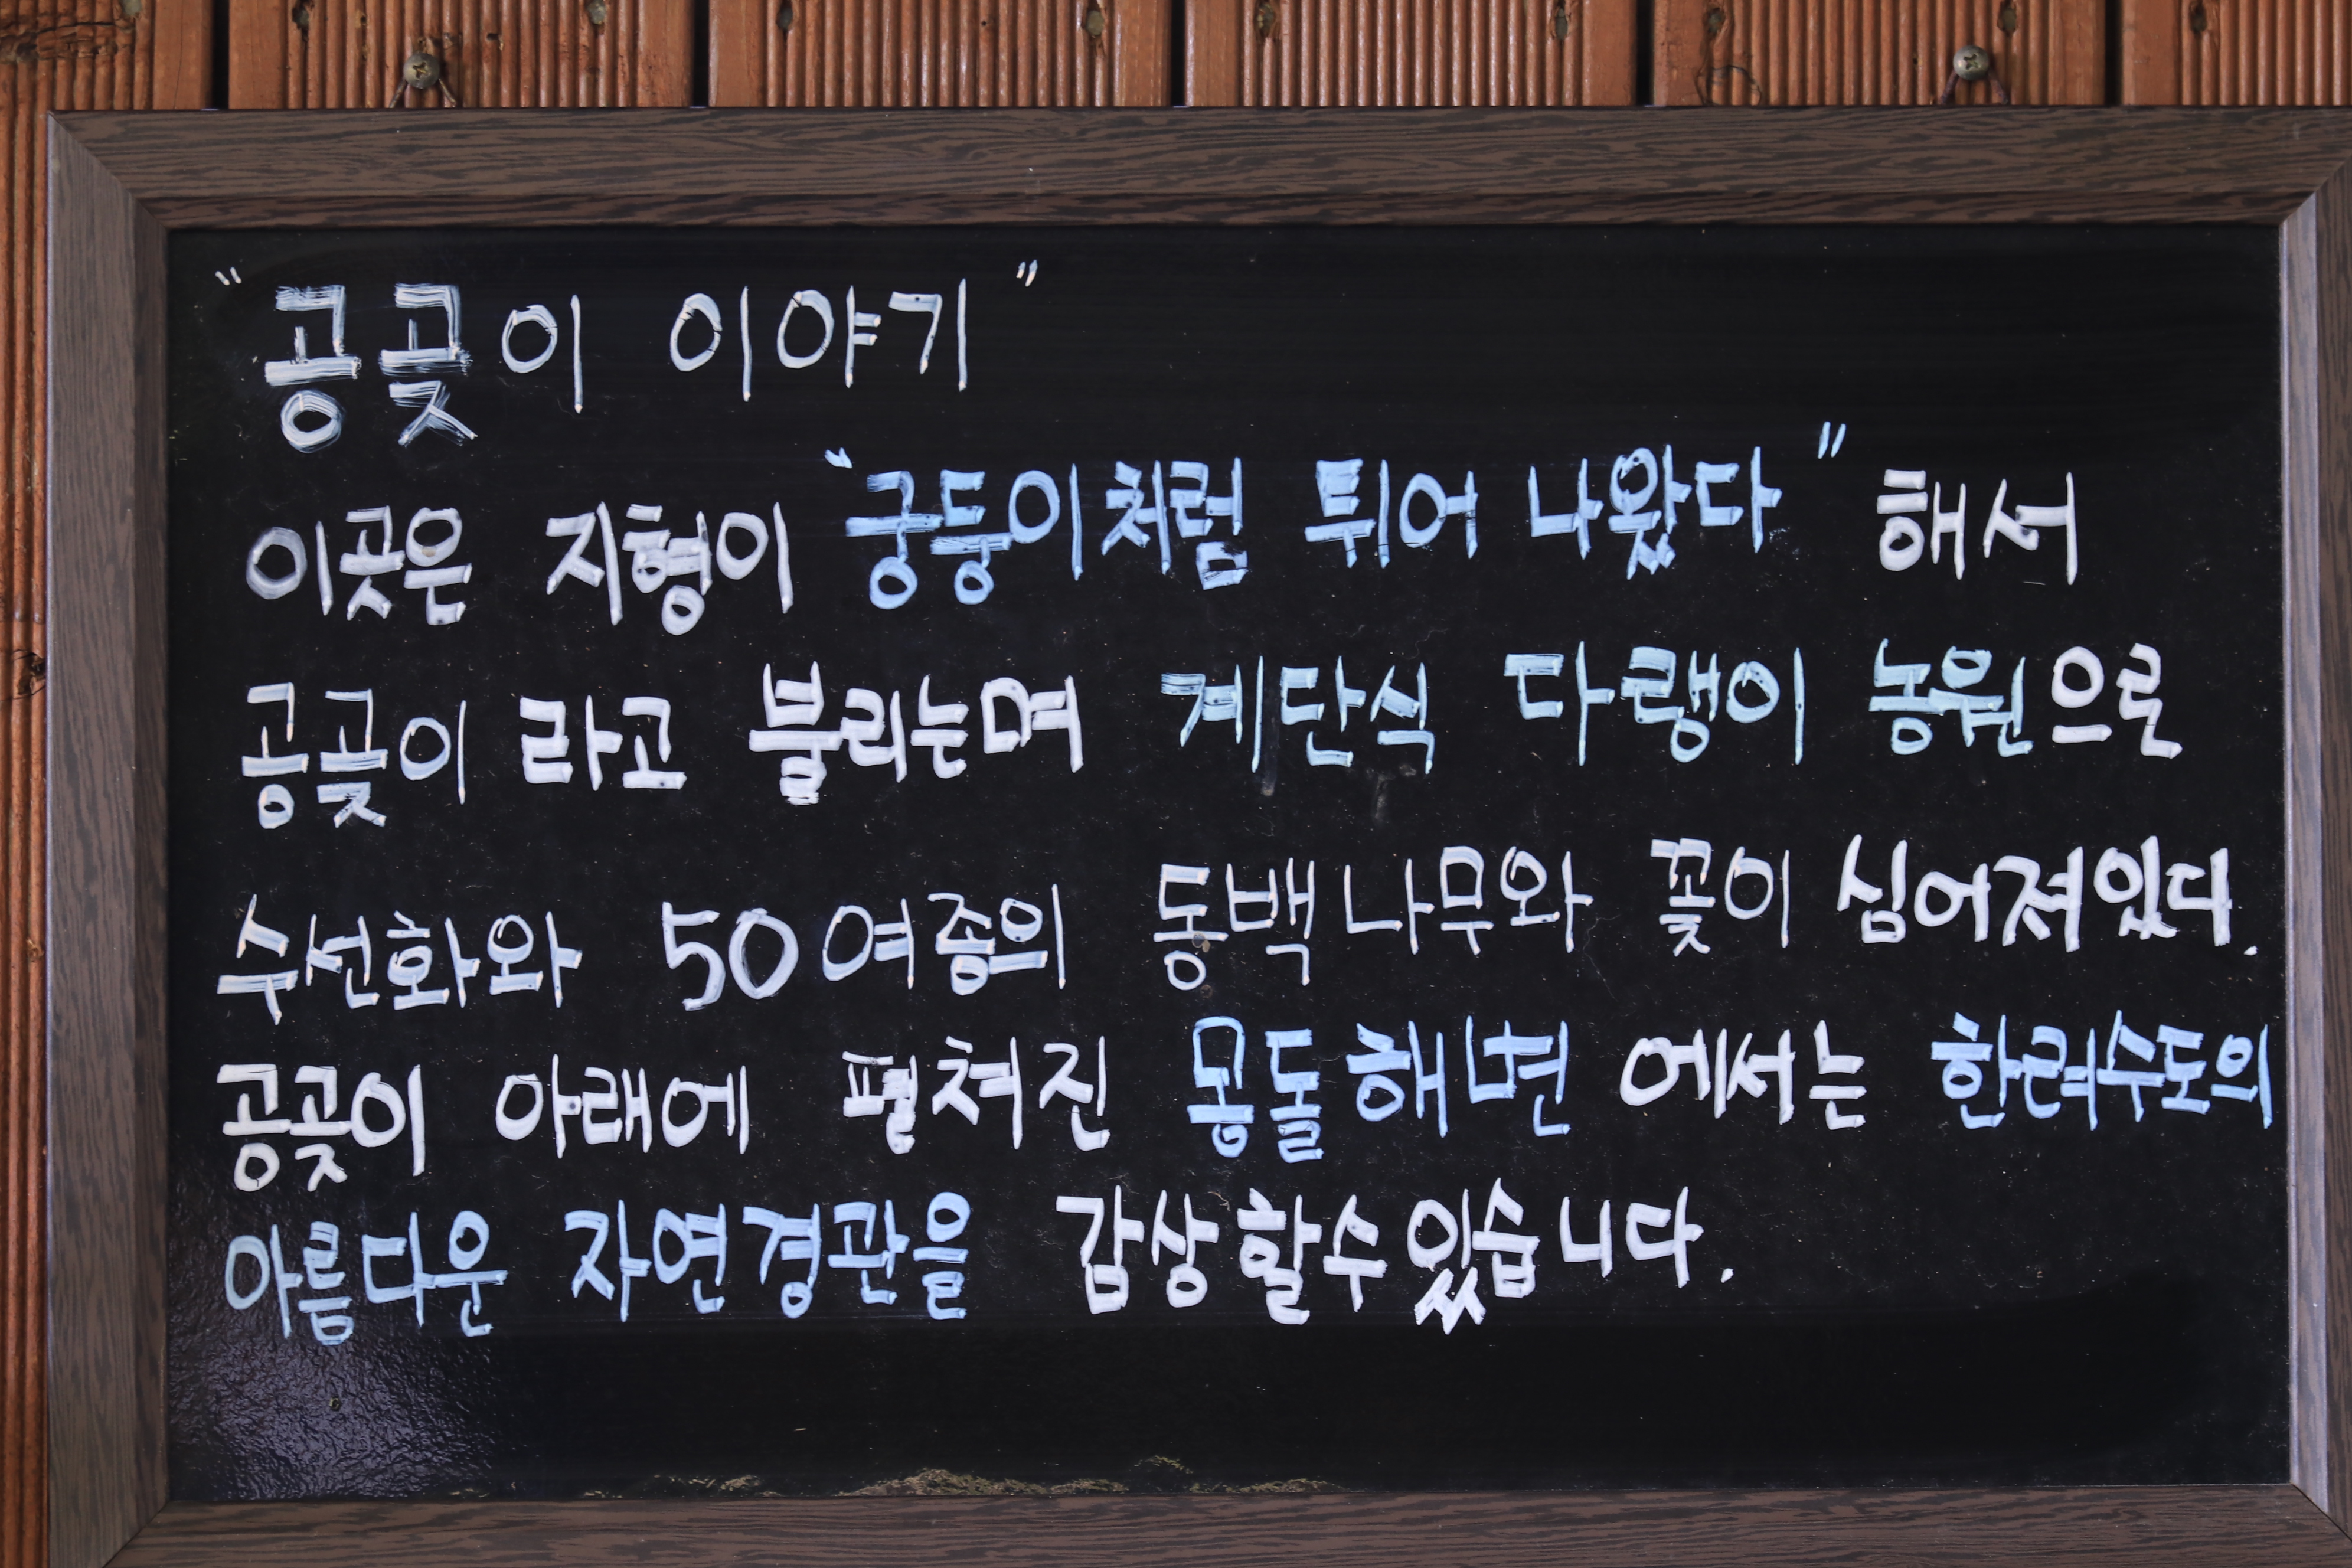 "공곶이 이야기"
이곳은 지형이 "궁둥이처럼 튀어 나왔다" 해서
공곶이 라고 불리는며 계단식 다랭이 농원으로
수선화와 50여종의 동백나무와 꽃이 심어져있다.
공곶이 아래에 펼쳐진 몽돌해변 에서는 한려수도의
아름다운 자연경관을 감상할수있습니다.